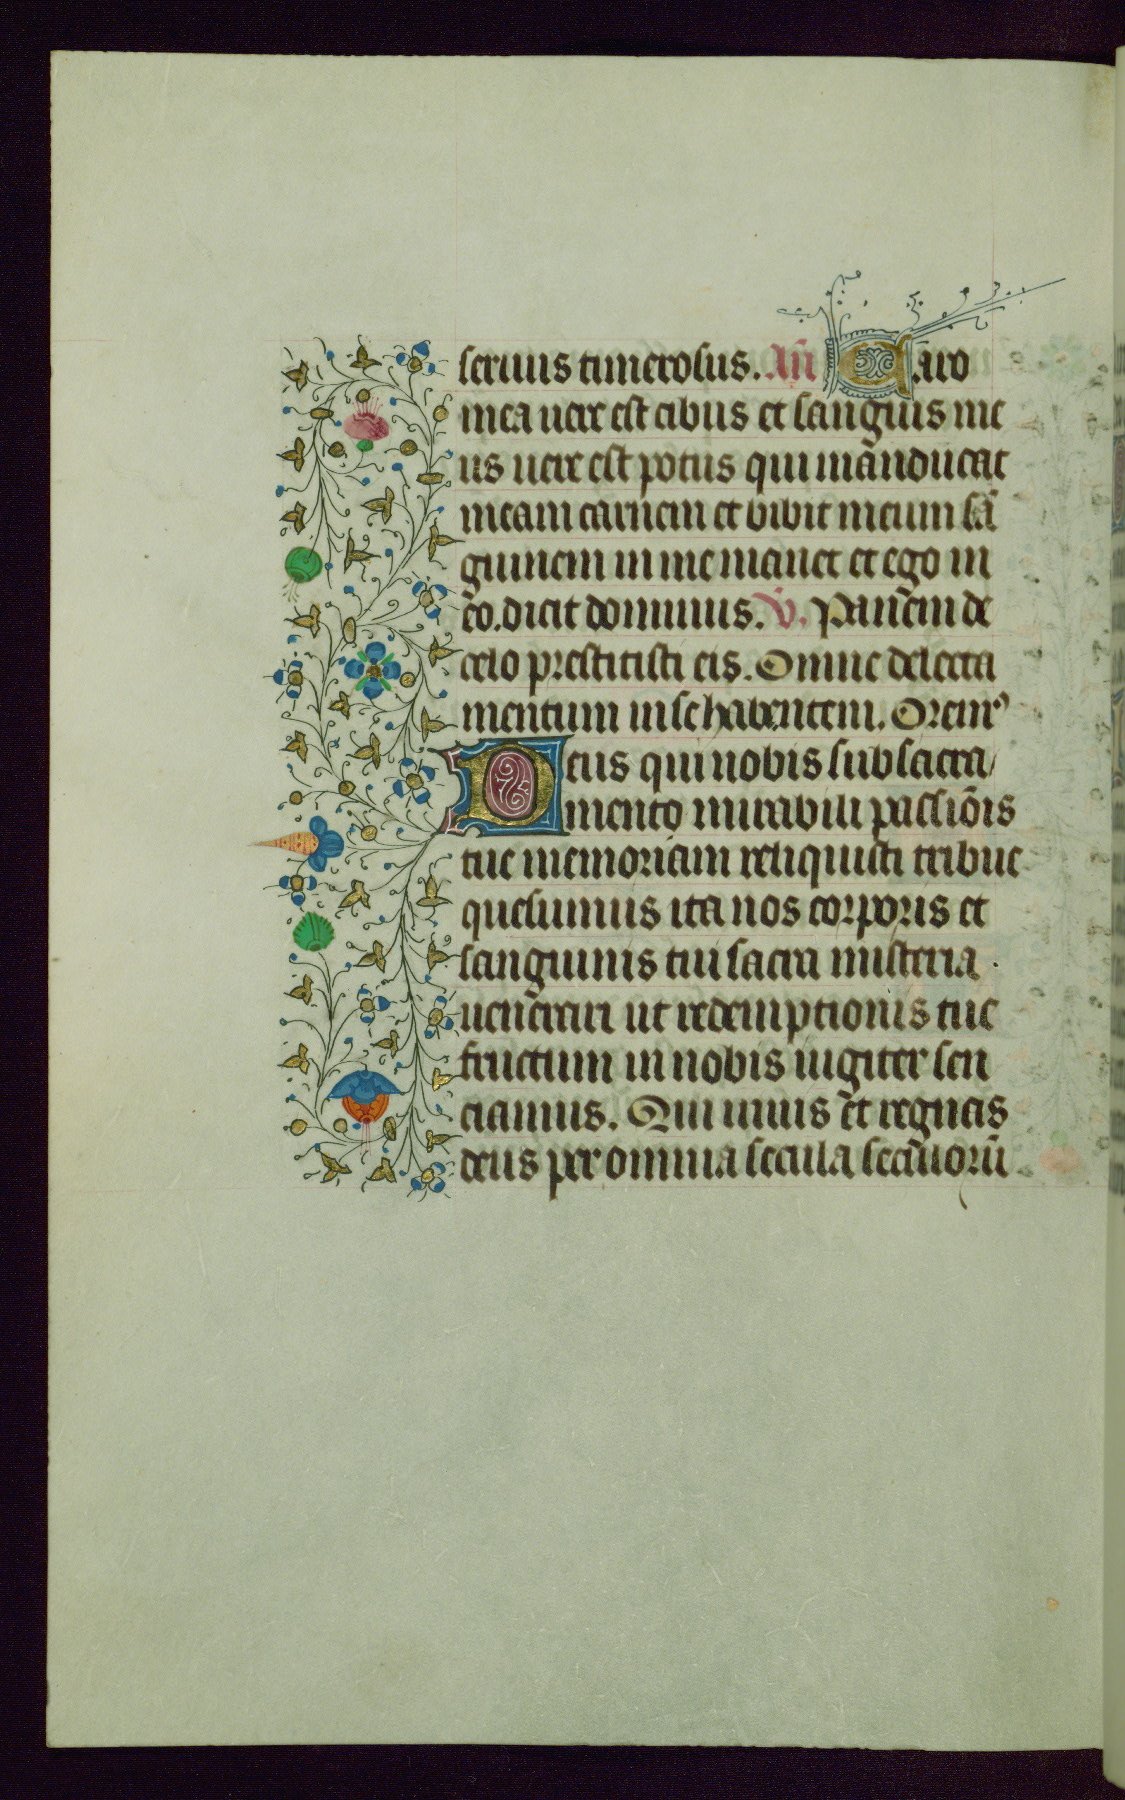 seruus timerosus. An̄ Caro
mea uere est cibus et sanguis me
us uere est potus qui manducat
meam carnem et bibit meum sā
guinem in me manet et ego in
eo. dicit dominus. V. Panem de
celo prestitisti eis. Omne delecta
mentum in se habentem. Orem⁹
Deus qui nobis sub sacra/
mento mirabili passiōis
tue memoriam reliquisti tribue
quesumus ita nos corporis et
sanguinis tui sacra misteria
uenerari ut redemptionis tue
fructum in nobis iugiter sen
ciamus. Qui uiuis et regnas
deus per omnia secula seculorū